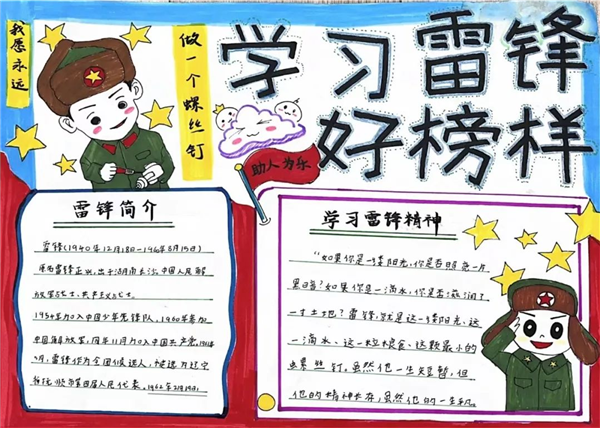 我愿永远
做一个螺丝钉
学习雷锋
好榜样
助人为乐
雷锋简介
雷锋(1940年12月18日-1962年8月15日)
原名雷正兴,出生于湖南长沙,中国人民解
放军战士、共产主义战士。
1954年加入中国少年先锋队,1960年参加
中国解放军,同年11月加入中国共产党。1961年
5月,雷锋作为全国候选人,被选为辽宁
省抚顺市第四届人民代表。1962年2月19日,
学习雷锋精神
"如果你是一缕阳光,你是否照亮一片
黑暗?如果你是一滴水,你是否滋润了
一寸土地?雷锋就是这一缕阳光、这
一滴水、这一粒粮食、这颗最小的
螺丝钉。虽然他一生短暂,但
他的精神长存,虽然他的一生平凡